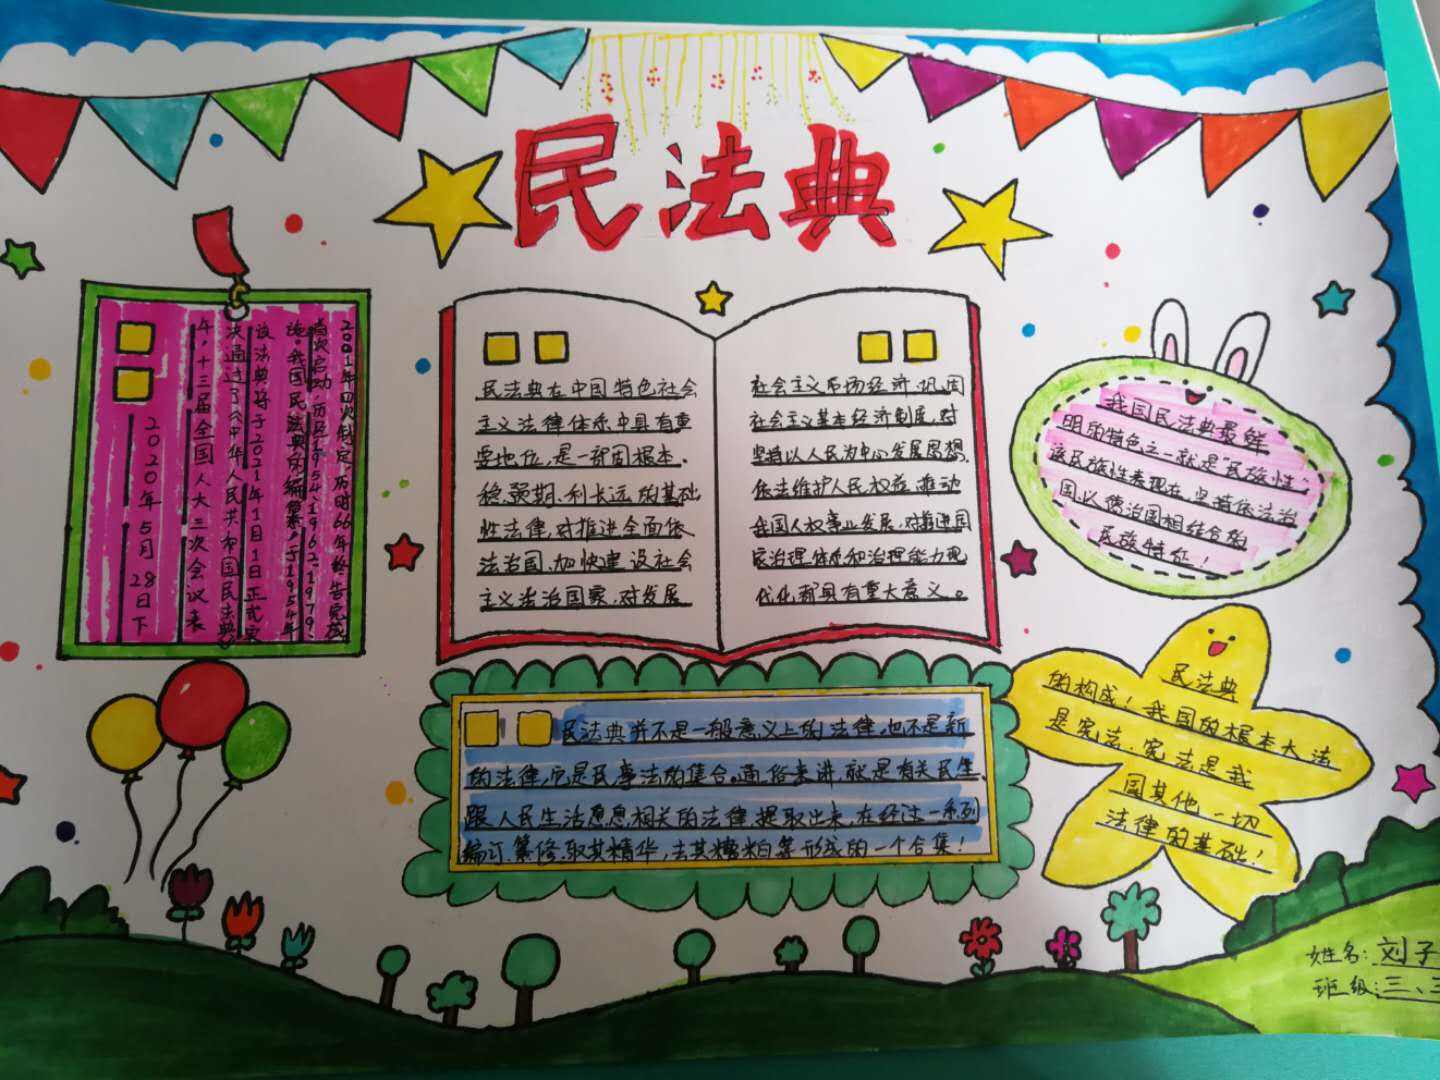 民法典
2020年5月28日下
午,十三届全国人大三次会议表
决通过了《中华人民共和国民法典》
该法典将于2021年1月1日正式实
施。我国民法典的编纂,于1954年
首次启动,历经1954、1962、1979、
2001年四次制定,历时66年终告完成
民法典在中国特色社会
主义法律体系中具有重
要地位,是一部固根本、
稳预期、利长远的基础
性法律,对推进全面依
法治国、加快建设社会
主义法治国家,对发展
社会主义市场经济、巩固
社会主义基本经济制度,对
坚持以人民为中心发展思想,
依法维护人民权益、推动
我国人权事业发展,对推进国
家治理体系和治理能力现
代化都具有重大意义。
我国民法典最鲜
明的特色之一就是"民族性",
该民族性表现在,坚持依法治
国,以儒治国相结合的
民族特征!
民法典并不是一般意义上的法律,也不是新
的法律,它是民事法的集合。通俗来讲,就是有关民生、
跟人民生活息息相关的法律,提取出来,在经过一系列
编订、纂修、取其精华,去其糟粕等形成的一个合集!
民法典
的构成!我国的根本大法
是宪法,宪法是我
国其他一切
法律的基础!
姓名:刘子
班级:三、三